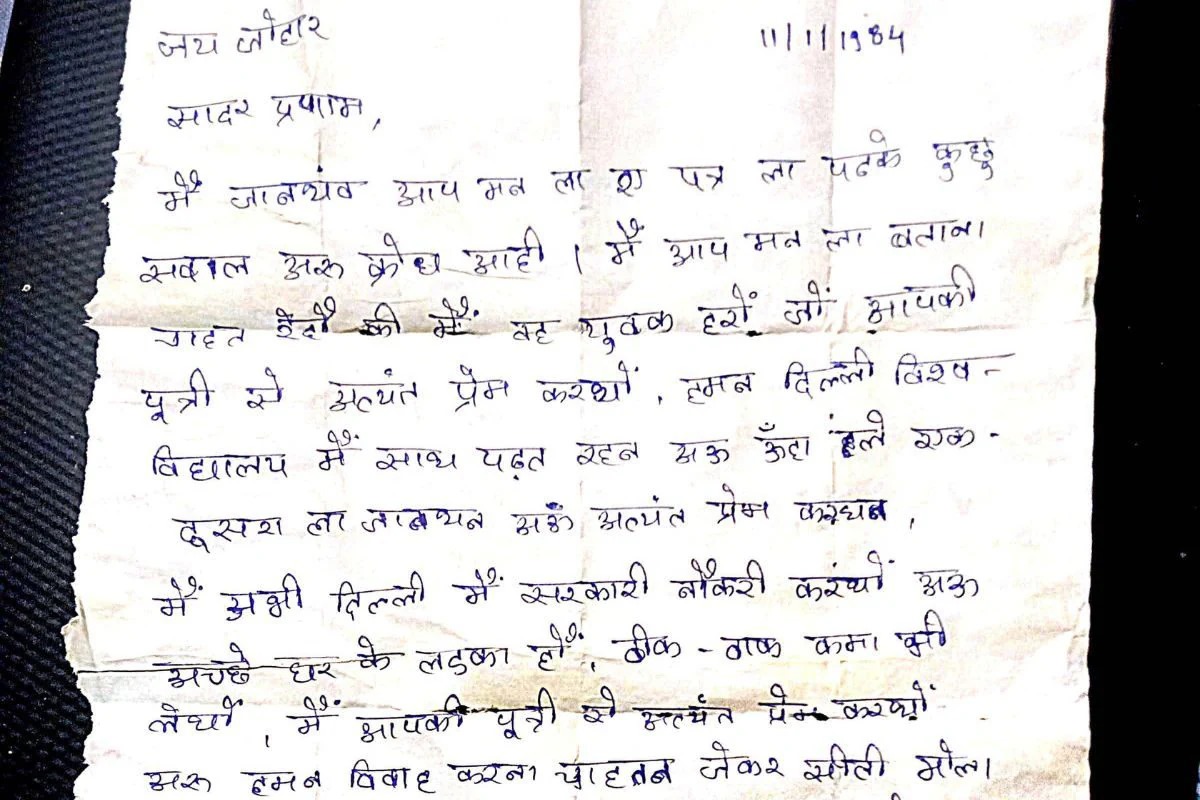 जय जोहार 11/1/1984
सादर प्रणाम,
मैं जानथंव आप मन ला ए पत्र ला पढके कुछु
सवाल अरु क्रोध आही । मैं आप मन ला बताना
चाहत हंदौ की मैं वह युवक हरों जों आपकी
पूत्री से अत्यंत प्रेम करथों, हमन दिल्ली विश्व-
विद्यालय मैं साथ पढ़त रहन अऊ ऊँहा हले एक-
दूसरा ला जानथन अऊ अत्यंत प्रेम करथन,
मैं अभी दिल्ली मैं सरकारी नौकरी करंथों अऊ
अच्छे घर के लड़का हों, ठीक-ठाक कमा भी
लेथों, मैं आपकी पूत्री से अत्यंत प्रेम करथों
अरु हमन विवाह करना चाहतन जेकर सीती मोला